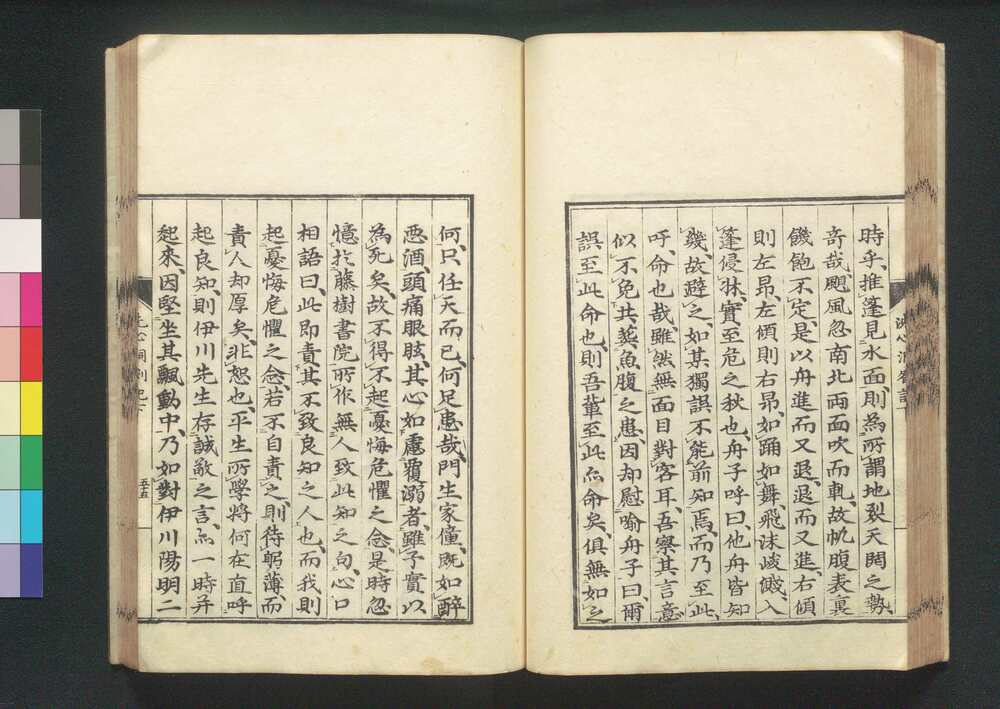 時乎、推篷見水面、則為所謂地裂天開之勢、
奇哉颶風忽南北両面吹而軋、故帆腹表裏
饑飽不定、是以舟進而又退、退而又進、右傾
則左昂、左傾則右昂、如踊如舞、飛沫峻濺、入
篷侵牀、實至危之秋也、舟子呼曰、他舟皆知
幾、故避之、如某獨誤不能前知焉、而乃至此、
呼、命也哉、雖然無面目對客耳、吾察其言意
似不免共葬魚腹之患、因却慰喻舟子曰、爾
誤至此命也、則吾輩至此亦命矣、俱無如之
何、只任天而已、何足患哉、門生家僮、既如醉
悪酒、頭痛眼眩、其心如慮覆溺者、雖子實以
為死矣、故不得不起憂悔危懼之念、是時忽
憶於藤樹書院所作無人致此知之句、心口
相語曰、此即責其不致良知之人也、而我則
起憂悔危懼之念、若不自責之則待躬薄、而
責人却厚矣、非恕也、平生所學將何在、直呼
起良知、則伊川先生存誠敬之言、亦一時并
起來、因堅坐其飄動中、乃如對伊川陽明二
五十五